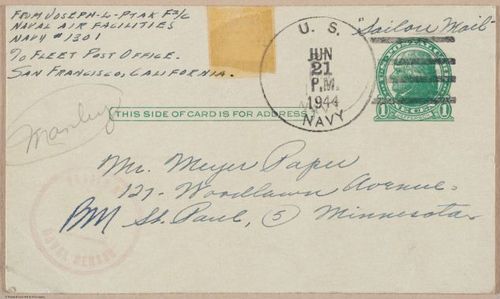 FROM JOSEPH-L-PTAK F2/C
NAVAL AIR FACILITIES
NAVY #1301
℅ FLEET POST OFFICE.
SAN FRANCISCO, CALIFORNIA.
"Sailors Mail"
U. S.
JUN
21
P.M.
1944
NAVY
1
THIS SIDE OF CARD IS FOR ADDRESS
Mr. Meyer Paper
127- Woodlawn Avenue.
St. Paul, (5) Minnesota.
NAVAL CENSOR